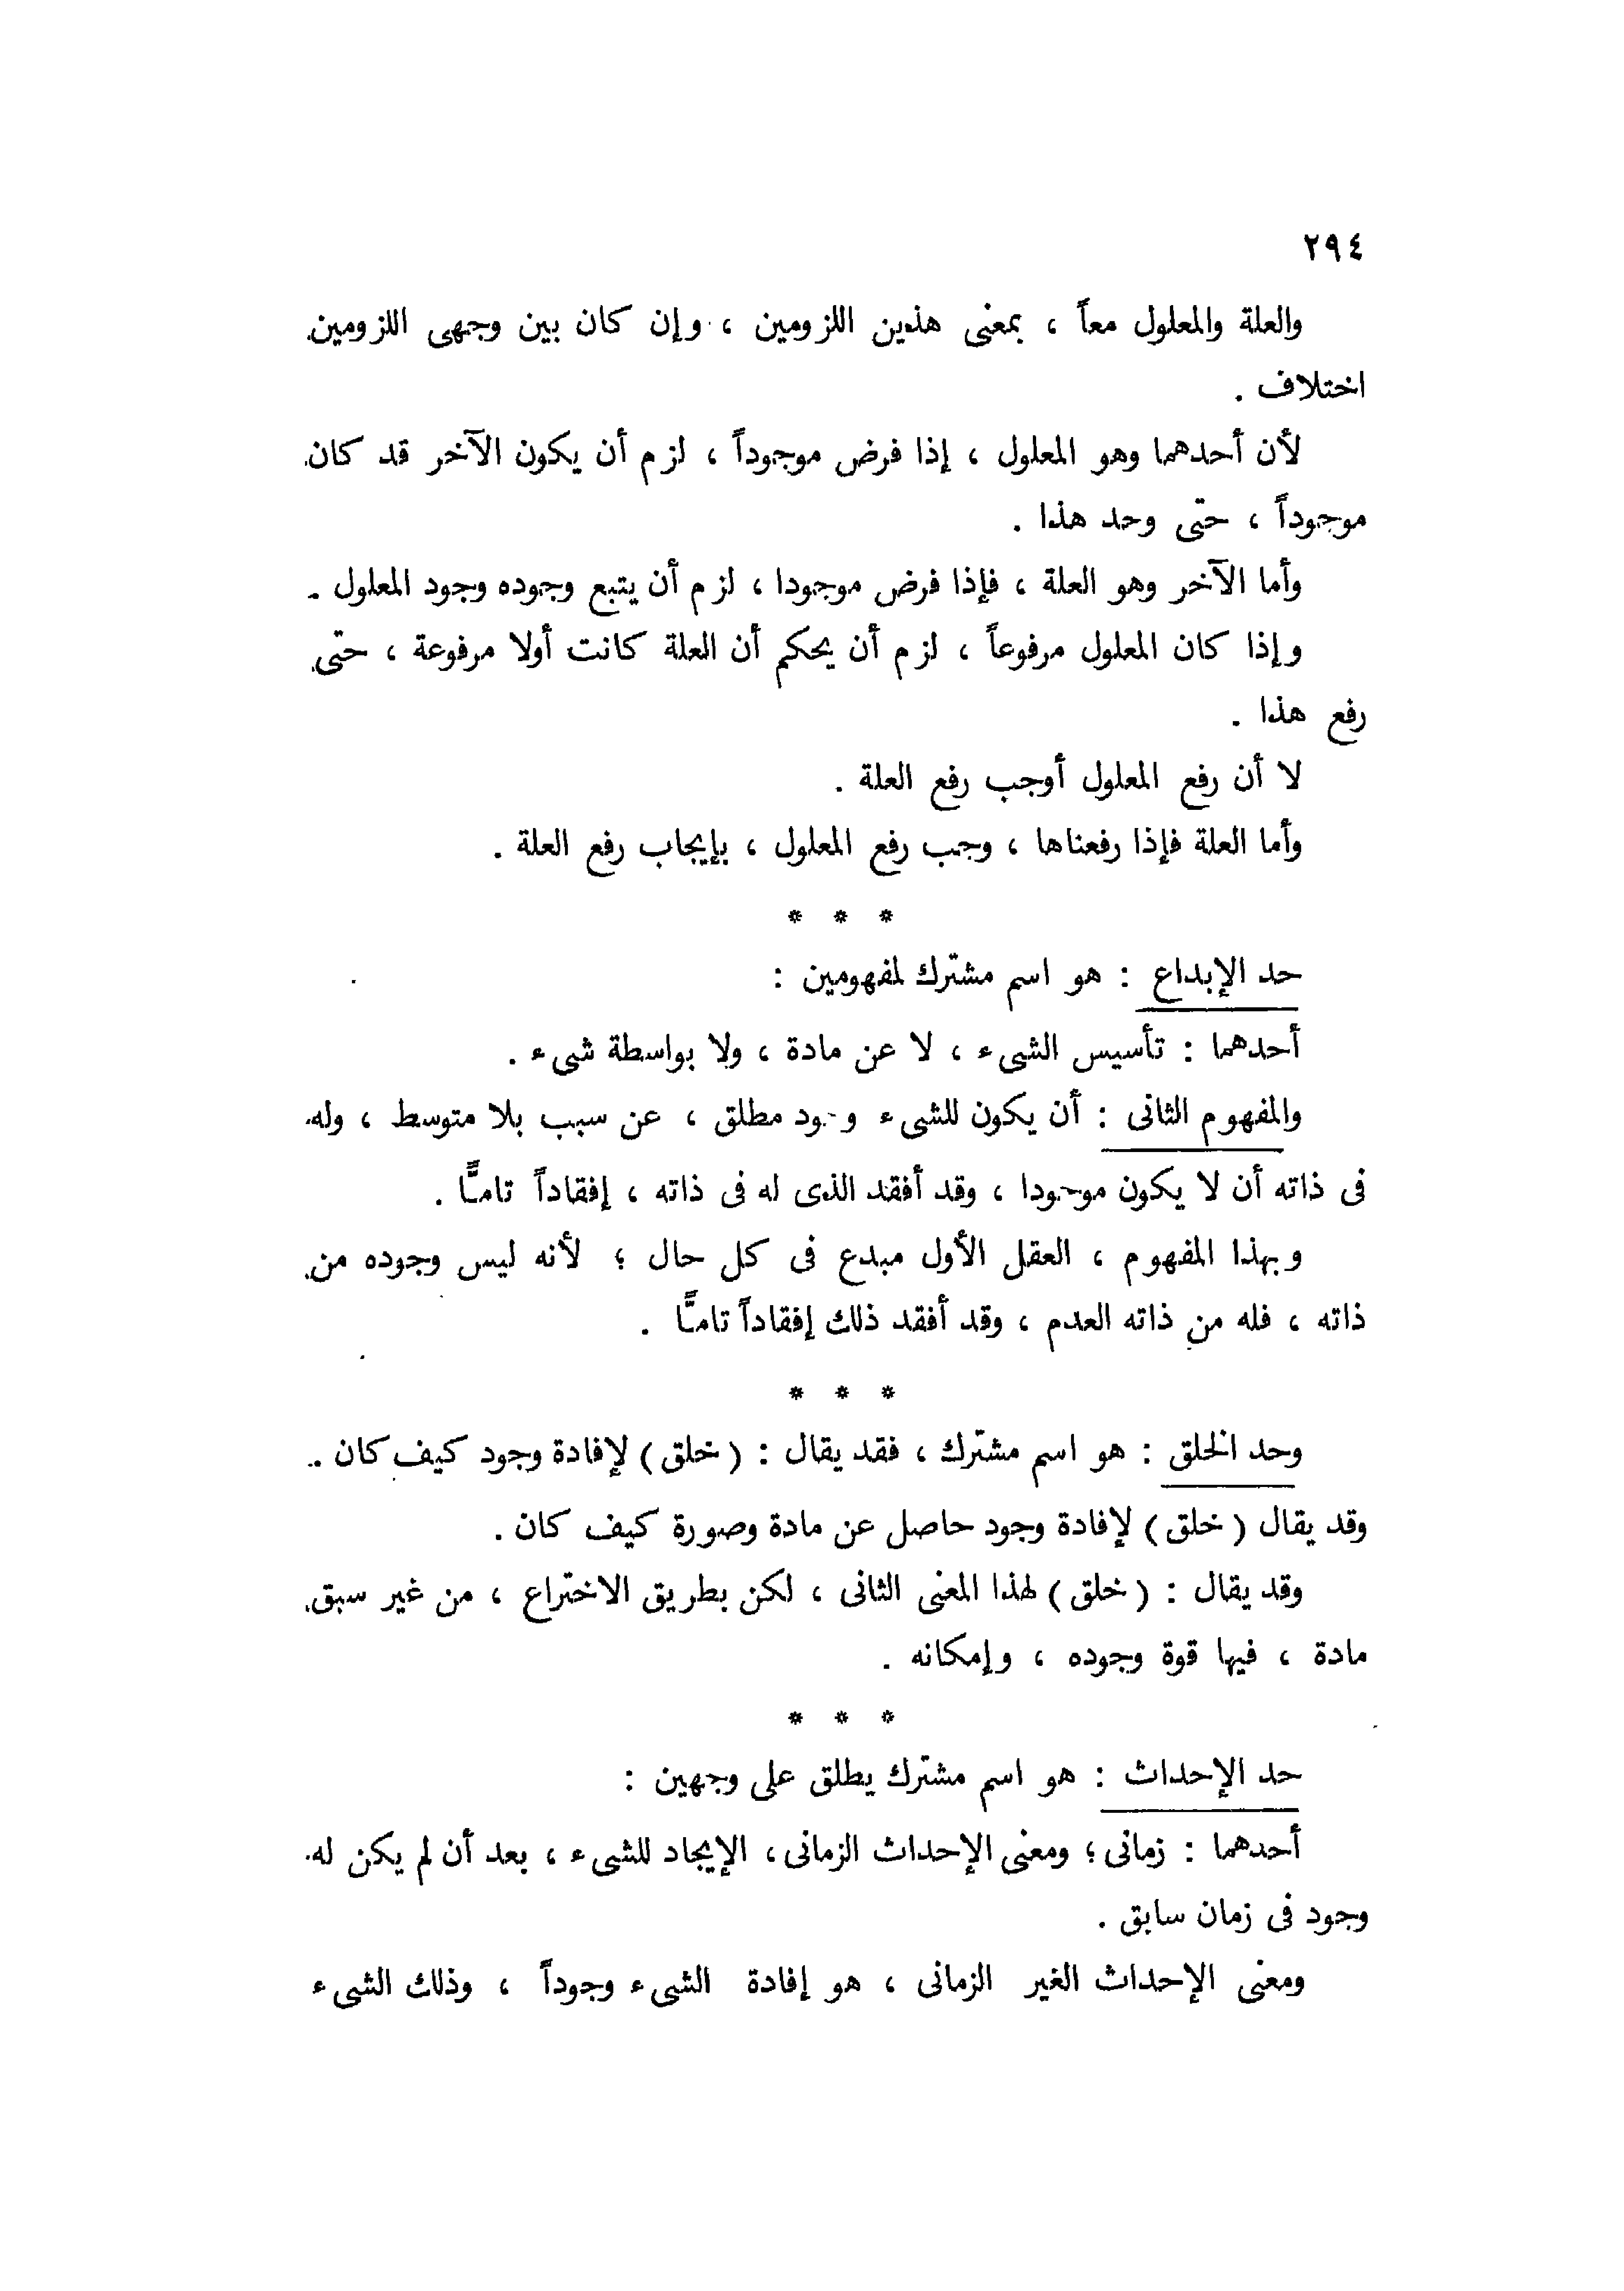 ٢٩٤
والعلة والمعلول معاً ، بمعنى هذين اللزومين ، وإن كان بين وجهى اللزومين
اختلاف .
لأن أحدهما وهو المعلول ، إذا فرض موجوداً ، لزم أن يكون الآخر قد كان
موجوداً ، حتى وحد هذا .
وأما الآخر وهو العلة ، فإذا فرض موجودا ، لزم أن يتبع وجوده وجود المعلول .
وإذا كان المعلول مرفوعاً ، لزم أن يحكم أن العلة كانت أولا مرفوعة ، حتى
رفع هذا .
لا أن رفع المعلول أوجب رفع العلة .
وأما العلة فإذا رفعناها ، وجب رفع المعلول ، بإيجاب رفع العلة .
* * *
حد الإبداع : هو اسم مشترك لمفهومين :
أحدهما : تأسيس الشىء ، لا عن مادة ، ولا بواسطة شىء .
والمفهوم الثانى : أن يكون للشىء وجود مطلق ، عن سبب بلا متوسط ، وله
فى ذاته أن لا يكون موجودا ، وقد أفقد الذى له فى ذاته ، إفقاداً تامـًّا .
وبهذا المفهوم ، العقل الأول مبدع فى كل حال ؛ لأنه ليس وجوده من
ذاته ، فله من ذاته العدم ، وقد أفقد ذلك إفقاداً تامـًّا .
* * *
وحد الخلق : هو اسم مشترك ، فقد يقال : ( خلق ) لإفادة وجود كيف كان .
وقد يقال ( خلق ) لإفادة وجود حاصل عن مادة وصورة كيف كان .
وقد يقال : ( خلق ) لهذا المعنى الثانى ، لكن بطريق الاختراع ، من غير سبق
مادة ، فيها قوة وجوده ، وإمكانه .
* * *
حد الإحداث : هو اسم مشترك يطلق على وجهين :
أحدهما : زمانى ؛ ومعنى الإحداث الزمانى ، الإيجاد للشىء ، بعد أن لم يكن له
وجود فى زمان سابق .
ومعنى الإحداث الغير الزمانى ، هو إفادة الشىء وجوداً ، وذلك الشىء